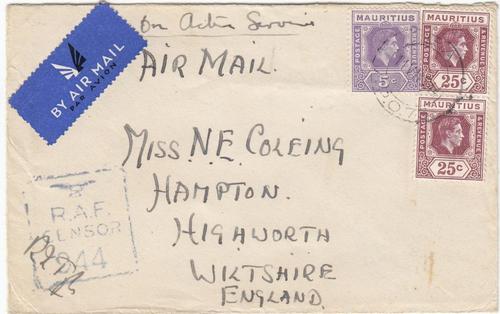 On Active Service
AIR MAIL.
BY AIR MAIL
PAR AVION
MAURITIUS
POSTAGE
& REVENUE
5c
MAURITIUS
POSTAGE
& REVENUE
25c
MAURITIUS
POSTAGE
& REVENUE
25c
MISS. N.E. COLEING
HAMPTON.
HIGHWORTH
WILTSHIRE
ENGLAND.
R.A.F.
CENSOR
244